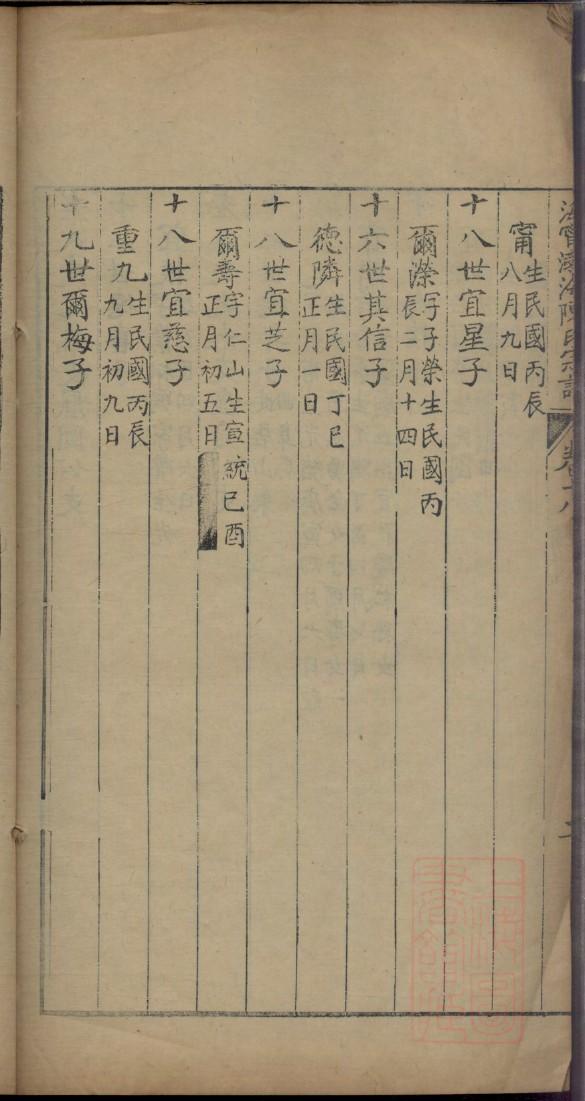 海甯渤海陳氏宗譜
卷十八
甯
生民國丙辰
八月九日
十八世宜星子
爾濚
字子榮生民國丙
辰二月十四日
十六世其信子
德隣
生民國丁巳
正月一日
十八世宜芝子
爾壽
字仁山生宣統己酉
正月初五日
十八世宜慈子
重九
生民國丙辰
九月初九日
十九世爾梅子